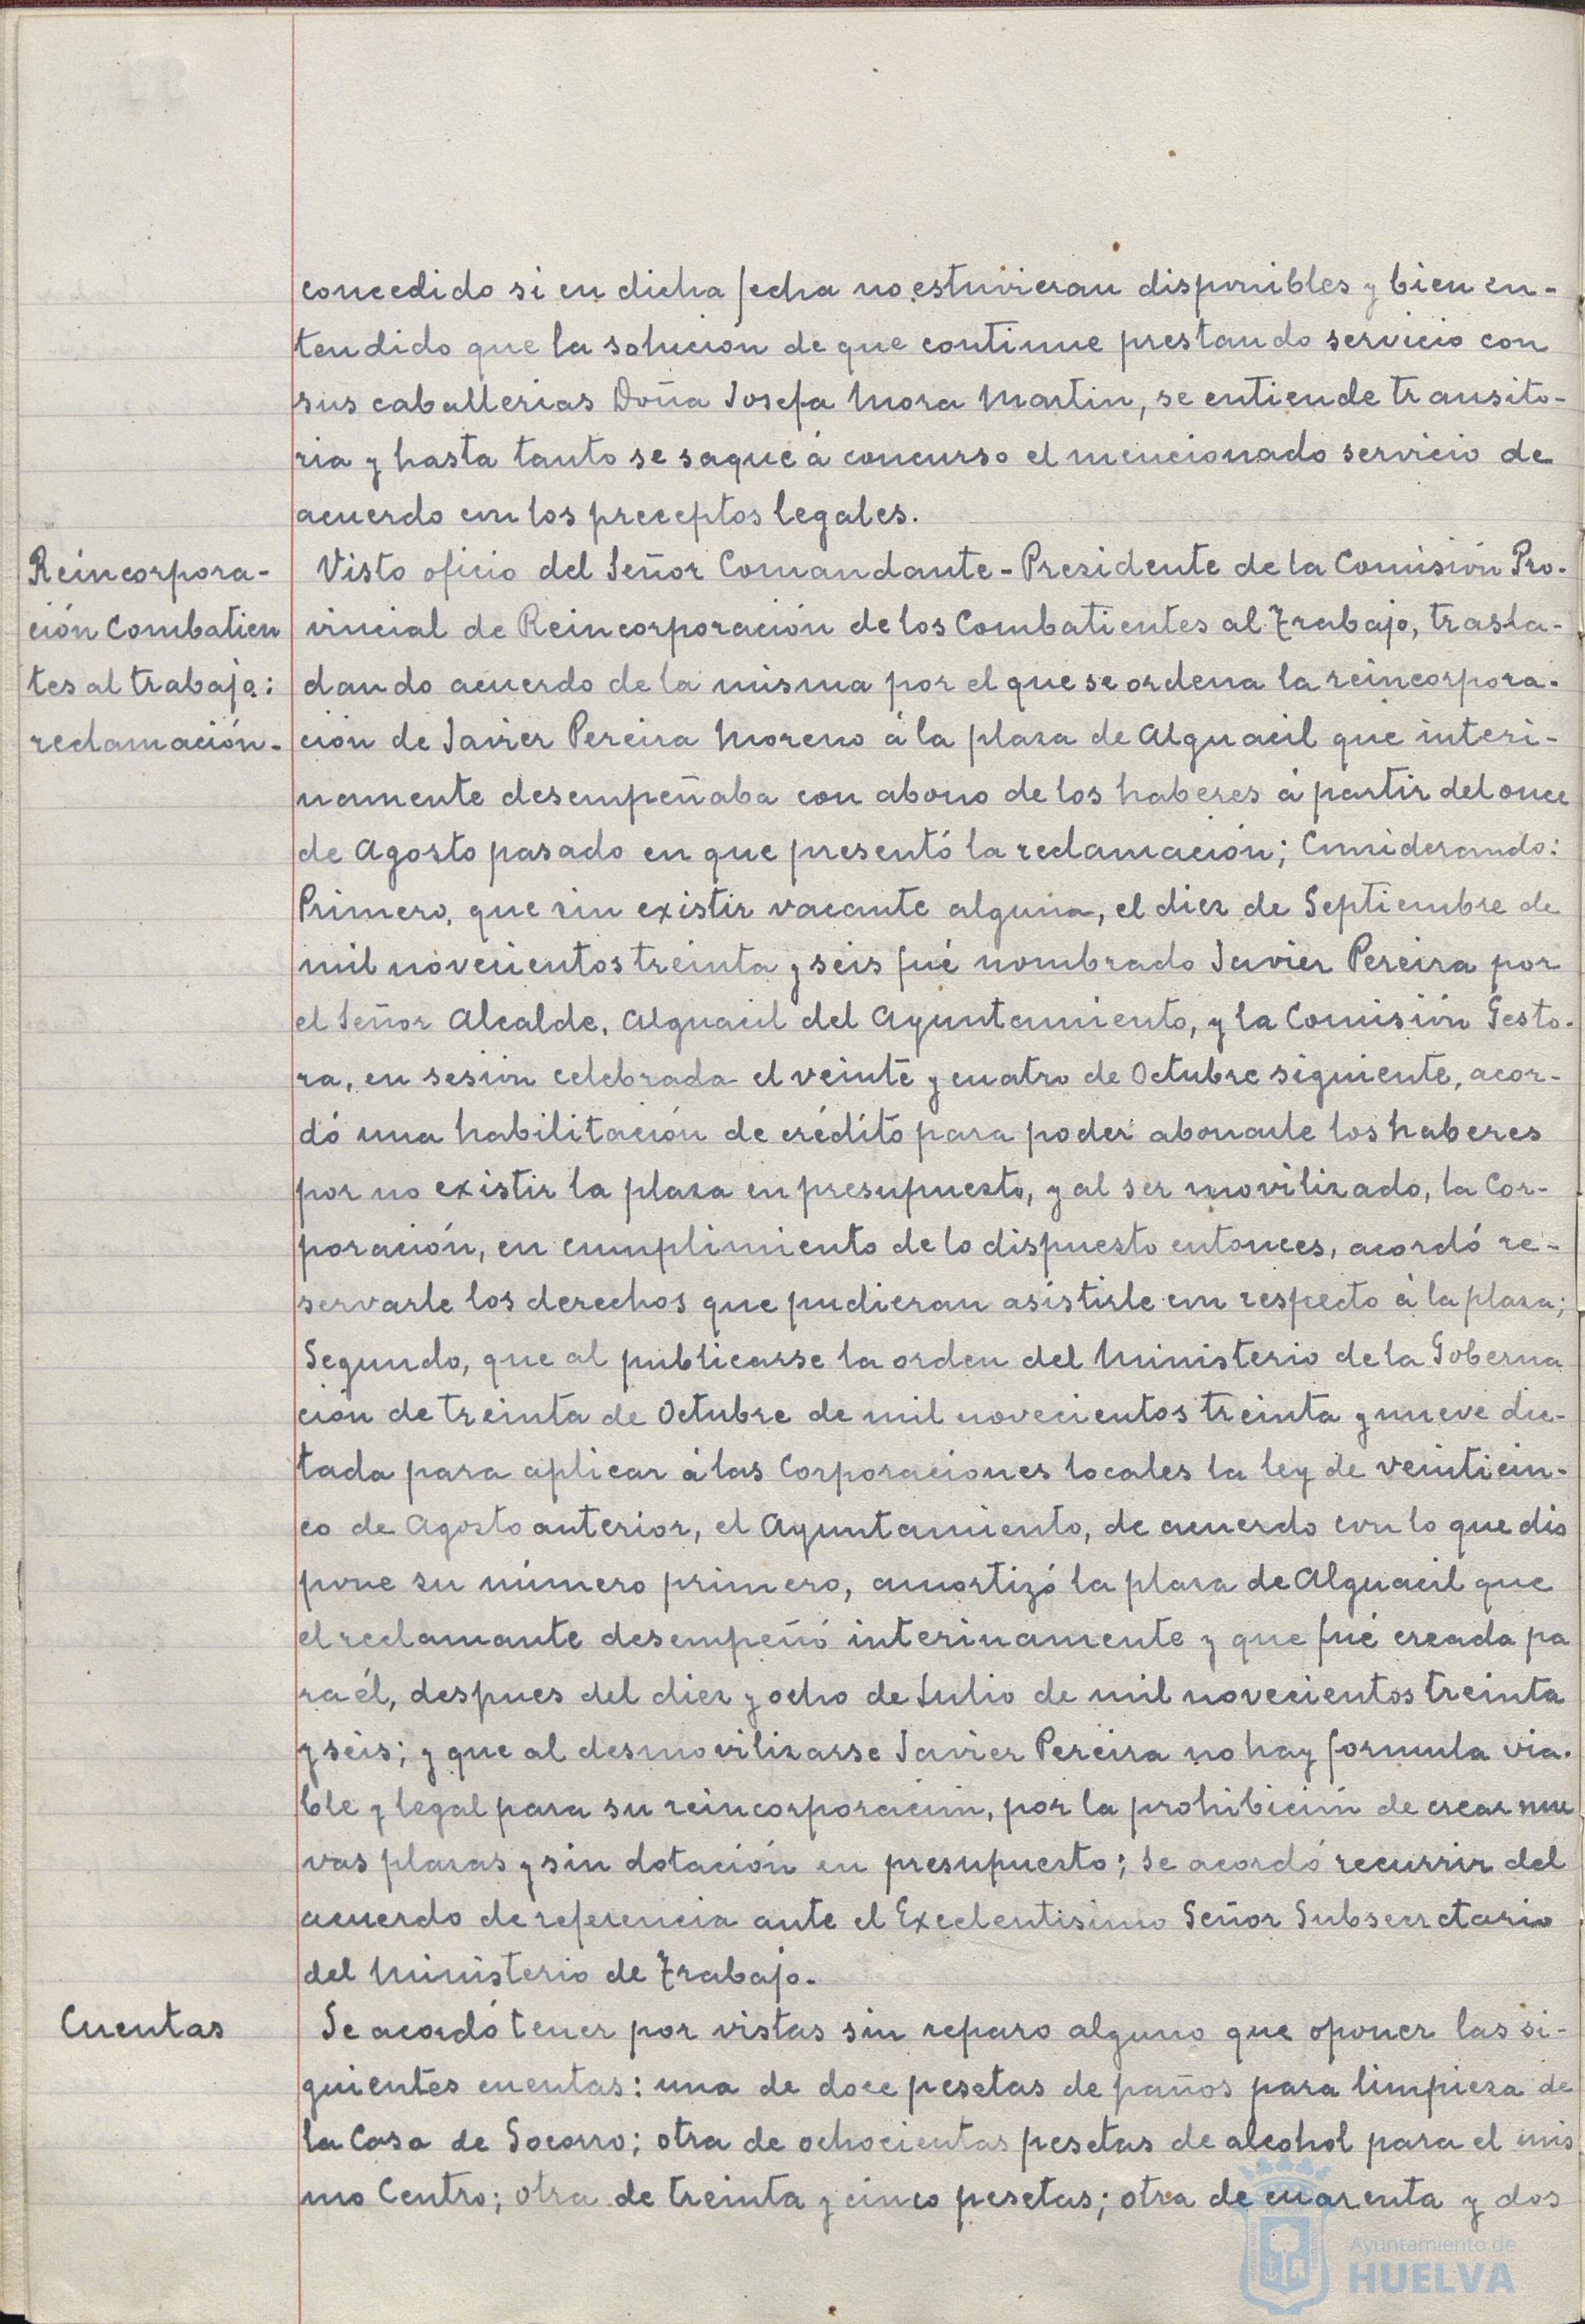 concedido si en dicha fecha no estuvieran disponibles y bien en-
tendido que la solución de que continue prestando servicio con
sus caballerias Doña Josefa Mora Martin, se entiende transito-
ria y hasta tanto se saque á concurso el mencionado servicio de
acuerdo con los preceptos legales.
Reincorpora-
ción Combatien
tes al trabajo:
reclamación.-
Visto oficio del Señor Comandante-Presidente de la Comisión Pro-
vincial de Reincorporación de los Combatientes al Trabajo, trasla-
dando acuerdo de la misma por el que se ordena la reincorpora-
ción de Javier Pereira Moreno á la plaza de Alguacil que interi-
namente desempeñaba con abono de los haberes á partir del once
de Agosto pasado en que presentó la reclamación; Considerando:
Primero, que sin existir vacante alguna, el diez de Septiembre de
mil novecientos treinta y seis fué nombrado Javier Pereira por
el Señor Alcalde, Alguacil del Ayuntamiento, y la Comisión Gesto-
ra, en sesión celebrada el veinte y cuatro de Octubre siguiente, acor-
dó una habilitación de crédito para poder abonarle los haberes
por no existir la plaza en presupuesto, y al ser movilizado, la Cor-
poración, en cumplimiento de lo dispuesto entonces, acordó re-
servarle los derechos que pudieran asistirle con respecto á la plaza;
Segundo, que al publicarse la orden del Ministerio de la Goberna
ción de treinta de Octubre de mil novecientos treinta y nueve dic-
tada para aplicar á las Corporaciones locales la ley de veinticin-
co de Agosto anterior, el Ayuntamiento, de acuerdo con lo que dis
pone su número primero, amortizó la plaza de Alguacil que
el reclamante desempeñó interinamente y que fué creada pa
ra él, despues del diez y ocho de Julio de mil novecientos treinta
y seis; y que al desmovilizarse Javier Pereira no hay formula via-
ble y legal para su reincorporación, por la prohibición de crear nue
vas plazas y sin dotación en presupuesto; se acordó recurrir del
acuerdo de referencia ante el Excelentisimo Señor Subsecretario
del Ministerio de Trabajo.
Cuentas
Se acordó tener por vistas sin reparo alguno que oponer las si-
guientes cuentas: una de doce pesetas de paños para limpieza de
la Casa de Socorro; otra de ochocientas pesetas de alcohol para el mis
mo Centro; otra de treinta y cinco pesetas; otra de cuarenta y dos
Ayuntamiento de
HUELVA